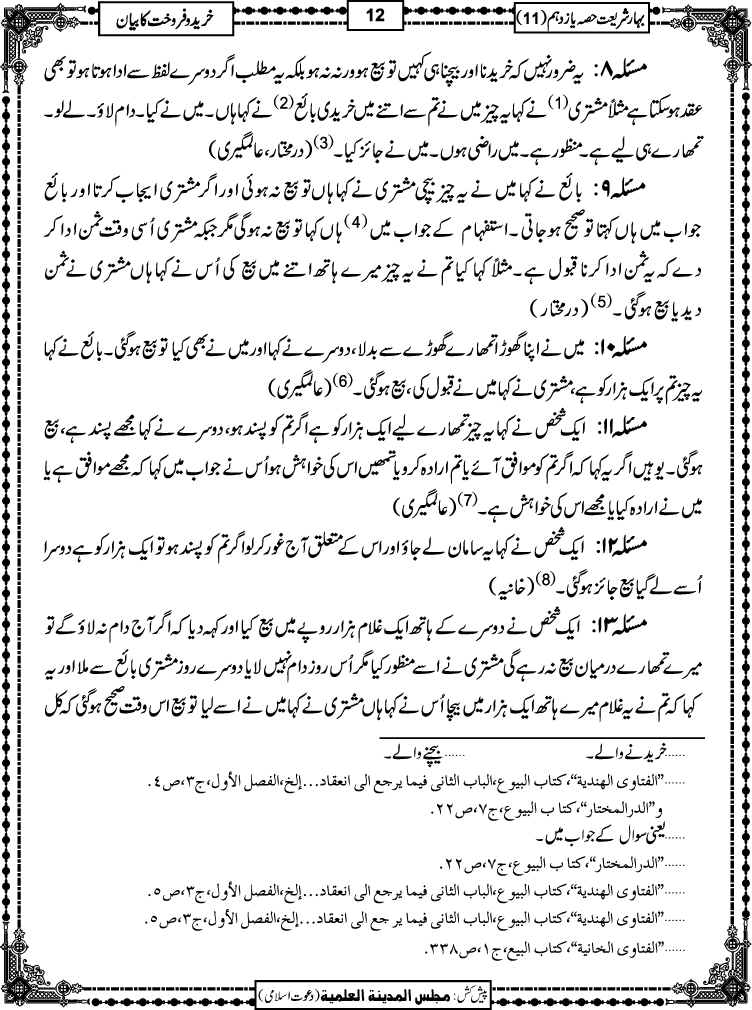 بہارِ شریعت حصہ یازدہم (11)
12
خرید و فروخت کا بیان
مسئلہ ۸: یہ ضرور نہیں کہ خریدنا اور بیچنا ہی کہیں تو بیع ہو ورنہ نہ ہو بلکہ یہ مطلب اگر دوسرے لفظ سے ادا ہوتا ہو تو بھی
عقد ہوسکتا ہے مثلاً مشتری (1) نے کہا یہ چیز میں نے تم سے اتنے میں خریدی بائع (2) نے کہا ہاں۔ میں نے کیا۔ دام لاؤ۔ لے لو۔
تمھارے ہی لیے ہے۔ منظور ہے۔ میں راضی ہوں۔ میں نے جائز کیا۔ (3) (درمختار، عالمگیری)
مسئلہ ۹: بائع نے کہا میں نے یہ چیز بیچی مشتری نے کہا ہاں تو بیع نہ ہوئی اور اگر مشتری ایجاب کرتا اور بائع
جواب میں ہاں کہتا تو صحیح ہو جاتی۔ استفہام کے جواب میں (4) ہاں کہا تو بیع نہ ہوگی مگر جبکہ مشتری اُسی وقت ثمن ادا کر
دے کہ یہ ثمن ادا کرنا قبول ہے۔ مثلاً کہا کیا تم نے یہ چیز میرے ہاتھ اتنے میں بیع کی اُس نے کہا ہاں مشتری نے ثمن
دیدیا بیع ہوگئی۔ (5) (درمختار)
مسئلہ ۱۰: میں نے اپنا گھوڑا تمھارے گھوڑے سے بدلا، دوسرے نے کہا اور میں نے بھی کیا تو بیع ہوگئی۔ بائع نے کہا
یہ چیز تم پر ایک ہزار کو ہے، مشتری نے کہا میں نے قبول کی، بیع ہوگئی۔ (6) (عالمگیری)
مسئلہ ۱۱: ایک شخص نے کہا یہ چیز تمھارے لیے ایک ہزار کو ہے اگر تم کو پسند ہو، دوسرے نے کہا مجھے پسند ہے، بیع
ہوگئی۔ یوہیں اگر یہ کہا کہ اگر تم کو موافق آئے یا تم ارادہ کرو یا تمھیں اس کی خواہش ہو اُس نے جواب میں کہا کہ مجھے موافق ہے یا
میں نے ارادہ کیا یا مجھے اس کی خواہش ہے۔ (7) (عالمگیری)
مسئلہ ۱۲: ایک شخص نے کہا یہ سامان لے جاؤ اور اس کے متعلق آج غور کرلو اگر تم کو پسند ہو تو ایک ہزار کو ہے دوسرا
اُسے لے گیا بیع جائز ہوگئی۔ (8) (خانیہ)
مسئلہ ۱۳: ایک شخص نے دوسرے کے ہاتھ ایک غلام ہزار روپے میں بیع کیا اور کہہ دیا کہ اگر آج دام نہ لاؤ گے تو
میرے تمھارے درمیان بیع نہ رہے گی مشتری نے اسے منظور کیا مگر اُس روز دام نہیں لایا دوسرے روز مشتری بائع سے ملا اور یہ
کہا کہ تم نے یہ غلام میرے ہاتھ ایک ہزار میں بیچا اُس نے کہا ہاں مشتری نے کہا میں نے اسے لیا تو بیع اس وقت صحیح ہوگئی کہ کل
......خریدنے والے۔ ......بیچنے والے۔
......"الفتاوی الهندية"، کتاب البيوع، الباب الثانی فيما يرجع الی انعقاد...إلخ، الفصل الأول، ج۳، ص۴.
و"الدرالمختار"، کتاب البيوع، ج۷، ص۲۲.
......یعنی سوال کے جواب میں۔
......"الدرالمختار"، کتاب البيوع، ج۷، ص۲۲.
......"الفتاوی الهندية"، کتاب البيوع، الباب الثانی فيما يرجع الی انعقاد...إلخ، الفصل الأول، ج۳، ص۵.
......"الفتاوی الهندية"، کتاب البيوع، الباب الثانی فيما يرجع الی انعقاد...إلخ، الفصل الأول، ج۳، ص۵.
......"الفتاوی الخانية"، کتاب البيع، ج۱، ص۳۳۸.
پیش کش: مجلس المدينة العلمية (دعوت اسلامی)